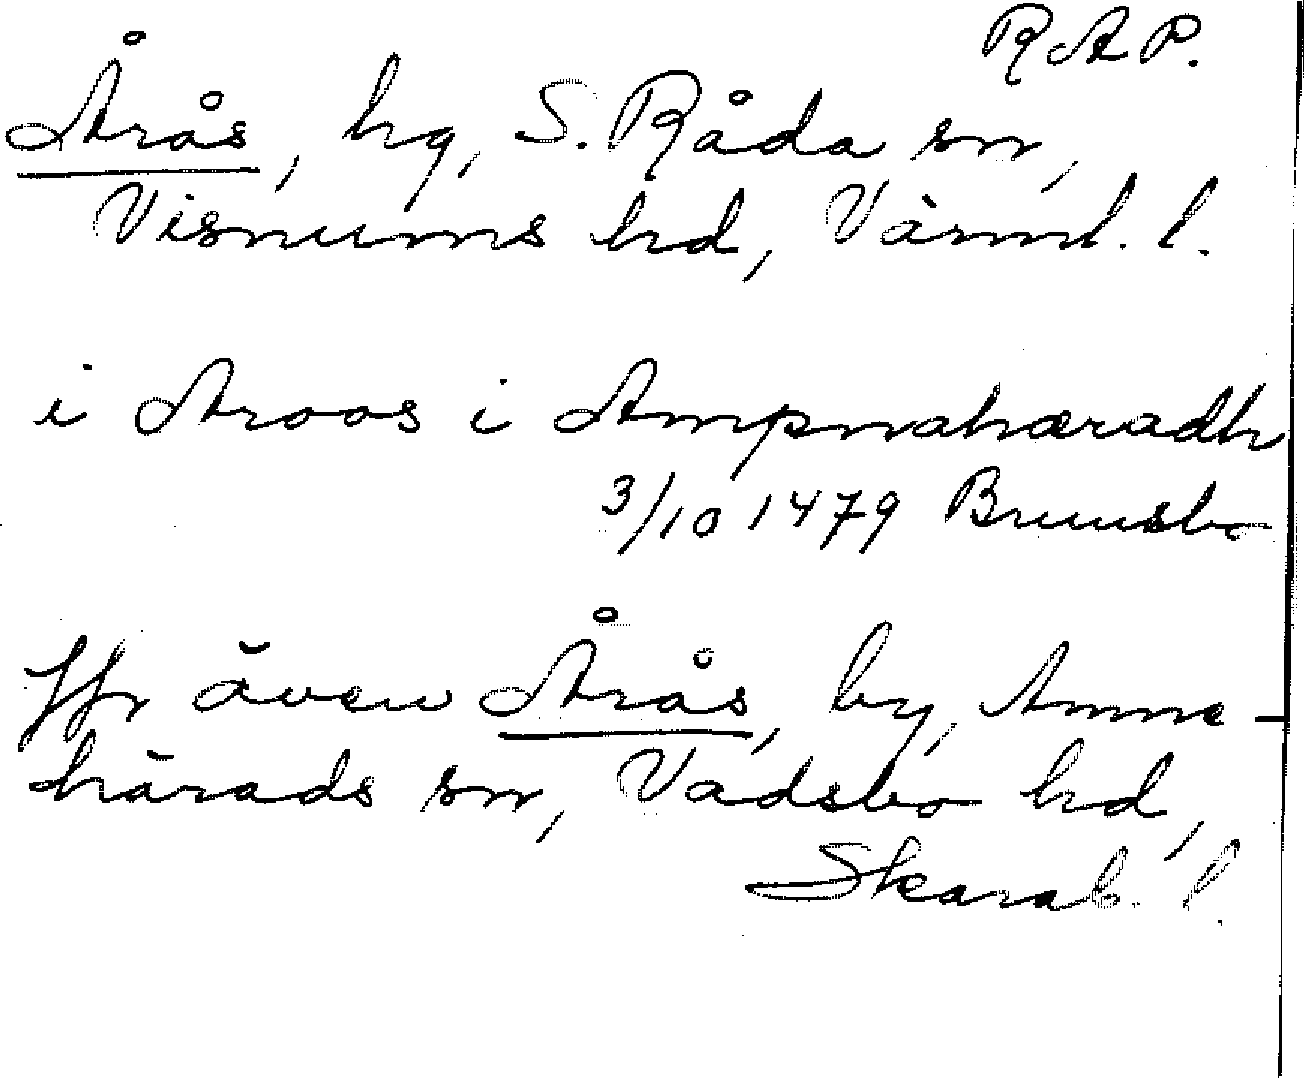 RAP.
Årås, hg, S. Råda sn,
Visnums hd, Värml. l.
i Aroos i Ampnahæradh
3/10 1479 Brunsbo
Jfr även Årås, by, Amne-
härads sn, Vadsbo hd,
Skarab. l.